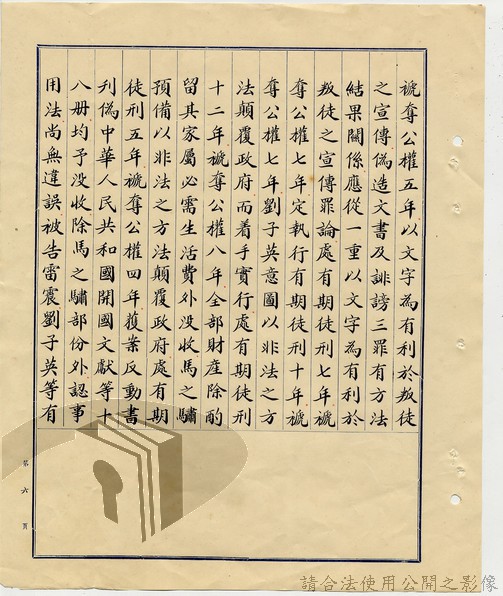 褫奪公權五年以文字為有利於叛徒
之宣傳偽造文書及誹謗三罪有方法
結果關係應從一重以文字為有利於
叛徒之宣傳罪論處有期徒刑七年褫
奪公權七年定執行有期徒刑十年褫
奪公權七年劉子英意圖以非法之方
法顛覆政府而着手實行處有期徒刑
十二年褫奪公權八年全部財產除酌
留其家屬必需生活費外没收馬之驌
預備以非法之方法顛覆政府處有期
徒刑五年褫奪公權四年獲案反動書
刊偽中華人民共和國開國文獻等十
八册均予没收除馬之驌部份外認事
用法尚無違誤被告雷震劉子英等有
第六頁
請合法使用公開之影像